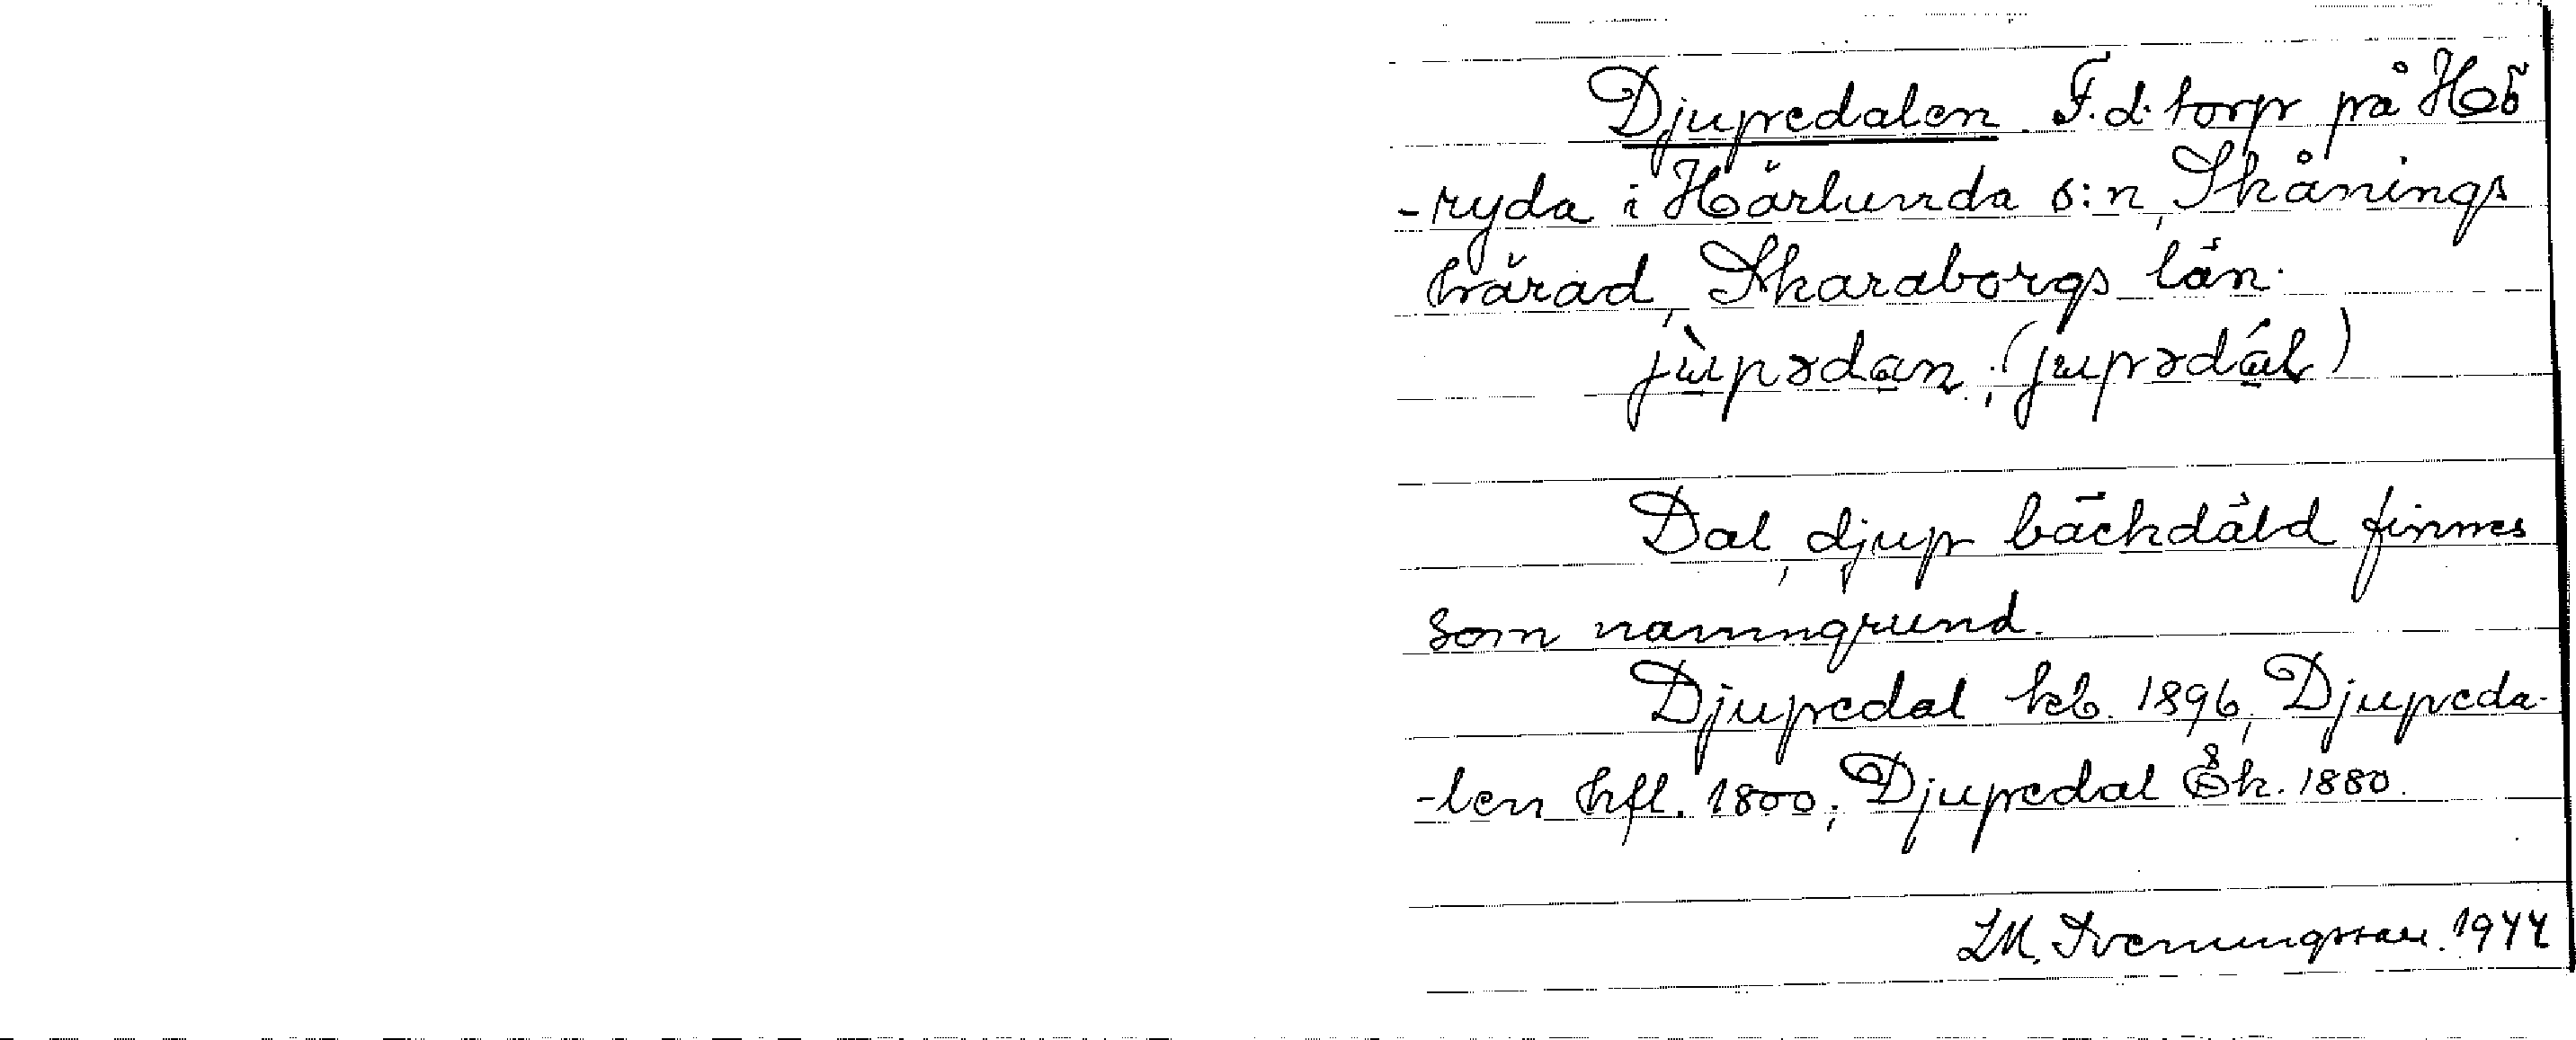 Djupedalen F.d. torp på Hö
-ryda i Härlunda s:n, Skånings
härad, Skaraborgs län.
jùpədan; (jupədál)
Dal, djup bäckdäld finnes
som namngrund.
Djupedal kb. 1896, Djupeda-
-len hfl. 1800; Djupedal Ek. 1880.
LM. Sveningsson. 1944